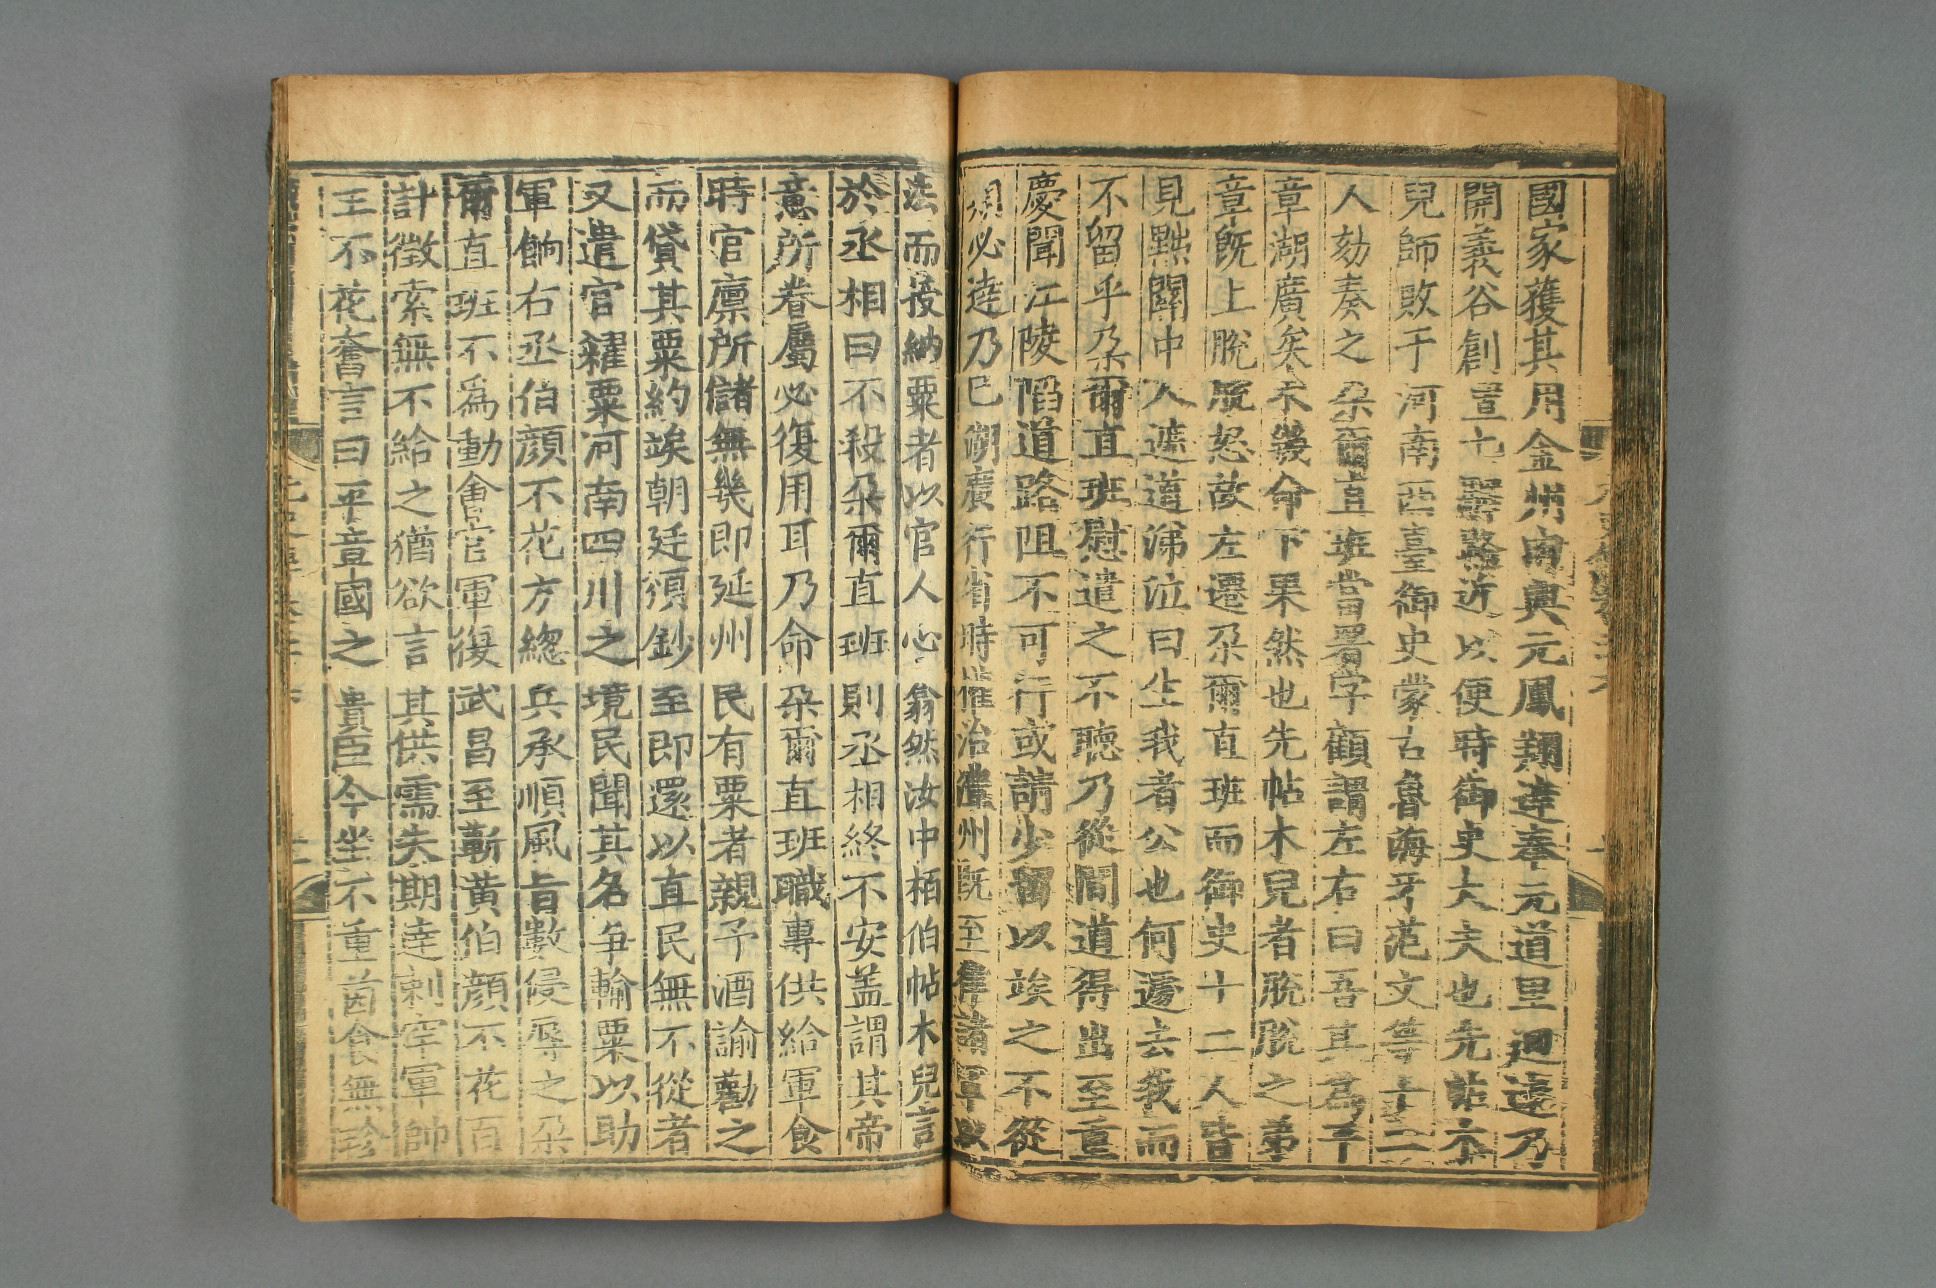 國家獲其用金州由興元鳳翔達奉元道里迴遠乃
開義谷創置七驛路近以便時御史大夫也先帖木
兒師敗于河南西臺御史蒙古魯海牙范文等十二
人劾奏之朵爾直班當署字顧謂左右曰吾其爲平
章湖廣矣未幾命下果然也先帖木兒者脫脫之弟
章旣上脫脫怒故左遷朵爾直班而御史十二人皆
見黜關中人遮道涕泣曰生我者公也何遽去我而
不留乎朵爾直班慰遣之不聽乃從間道得出至重
慶聞江陵陷道路阻不可行或請少留以竢之不從
期必達乃已湖廣行省時權治澧州旣至律諸軍以
法而授納粟者以官人心翕然汝中栢伯帖木兒言
於丞相曰不殺朵爾直班則丞相終不安蓋謂其帝
意所眷屬必復用耳乃命朵爾直班職專供給軍食
時官廪所儲無幾即延州民有粟者親予酒諭勸之
而貸其粟約竢朝廷頒鈔至即還以直民無不從者
又遣官糴粟河南四川之境民聞其名爭輸粟以助
軍餉右丞伯顔不花方緫兵承順風旨數侵辱之朵
爾直班不爲動會官軍復武昌至蘄黄伯顔不花百
計徴索無不給之猶欲言其供需失期達剌罕軍帥
王不花奮言曰平章國之貴臣今坐不重茵食無珍